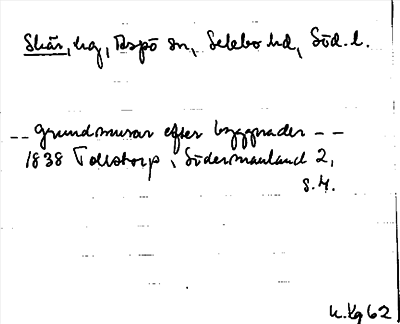 Skär, hg, Aspö sn, Selebo hd, Söd. l.
-- grundmurar efter byggnader --
1838 Tollstorp, Södermanland 2,
s. 4.
K.Kg 62